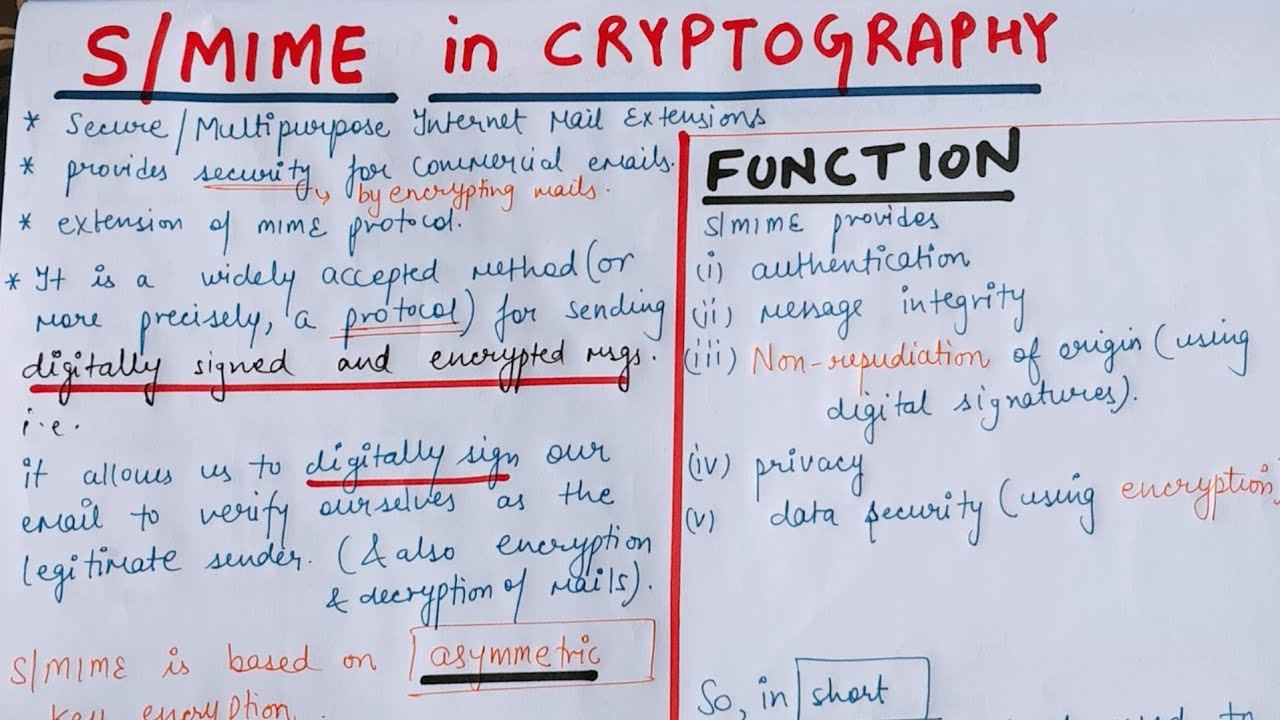 S/MIME in CRYPTOGRAPHY
* Secure/Multipurpose Internet Mail Extensions
* provides security for commercial emails.
↳ by encrypting mails.
* extension of MIME protocol.
* It is a widely accepted method (or
more precisely, a protocol) for sending
digitally signed and encrypted msgs.
i.e.
it allows us to digitally sign our
email to verify ourselves as the
legitimate sender. (& also encryption
& decryption of mails).
S/MIME is based on asymmetric
key encryption.
FUNCTION
S/MIME provides
(i) authentication
(ii) message integrity
(iii) Non-repudiation of origin (using
digital signatures).
(iv) privacy
(v) data security (using encryption)
So, in short
to